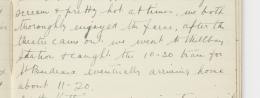 scream & pretty hot at times. we both
thoroughly enjoyed the farce, after the
theatre came out we went to Millbay
station & caught the 10-30 train for
St Budeaux eventually arriving home
about 11-20.